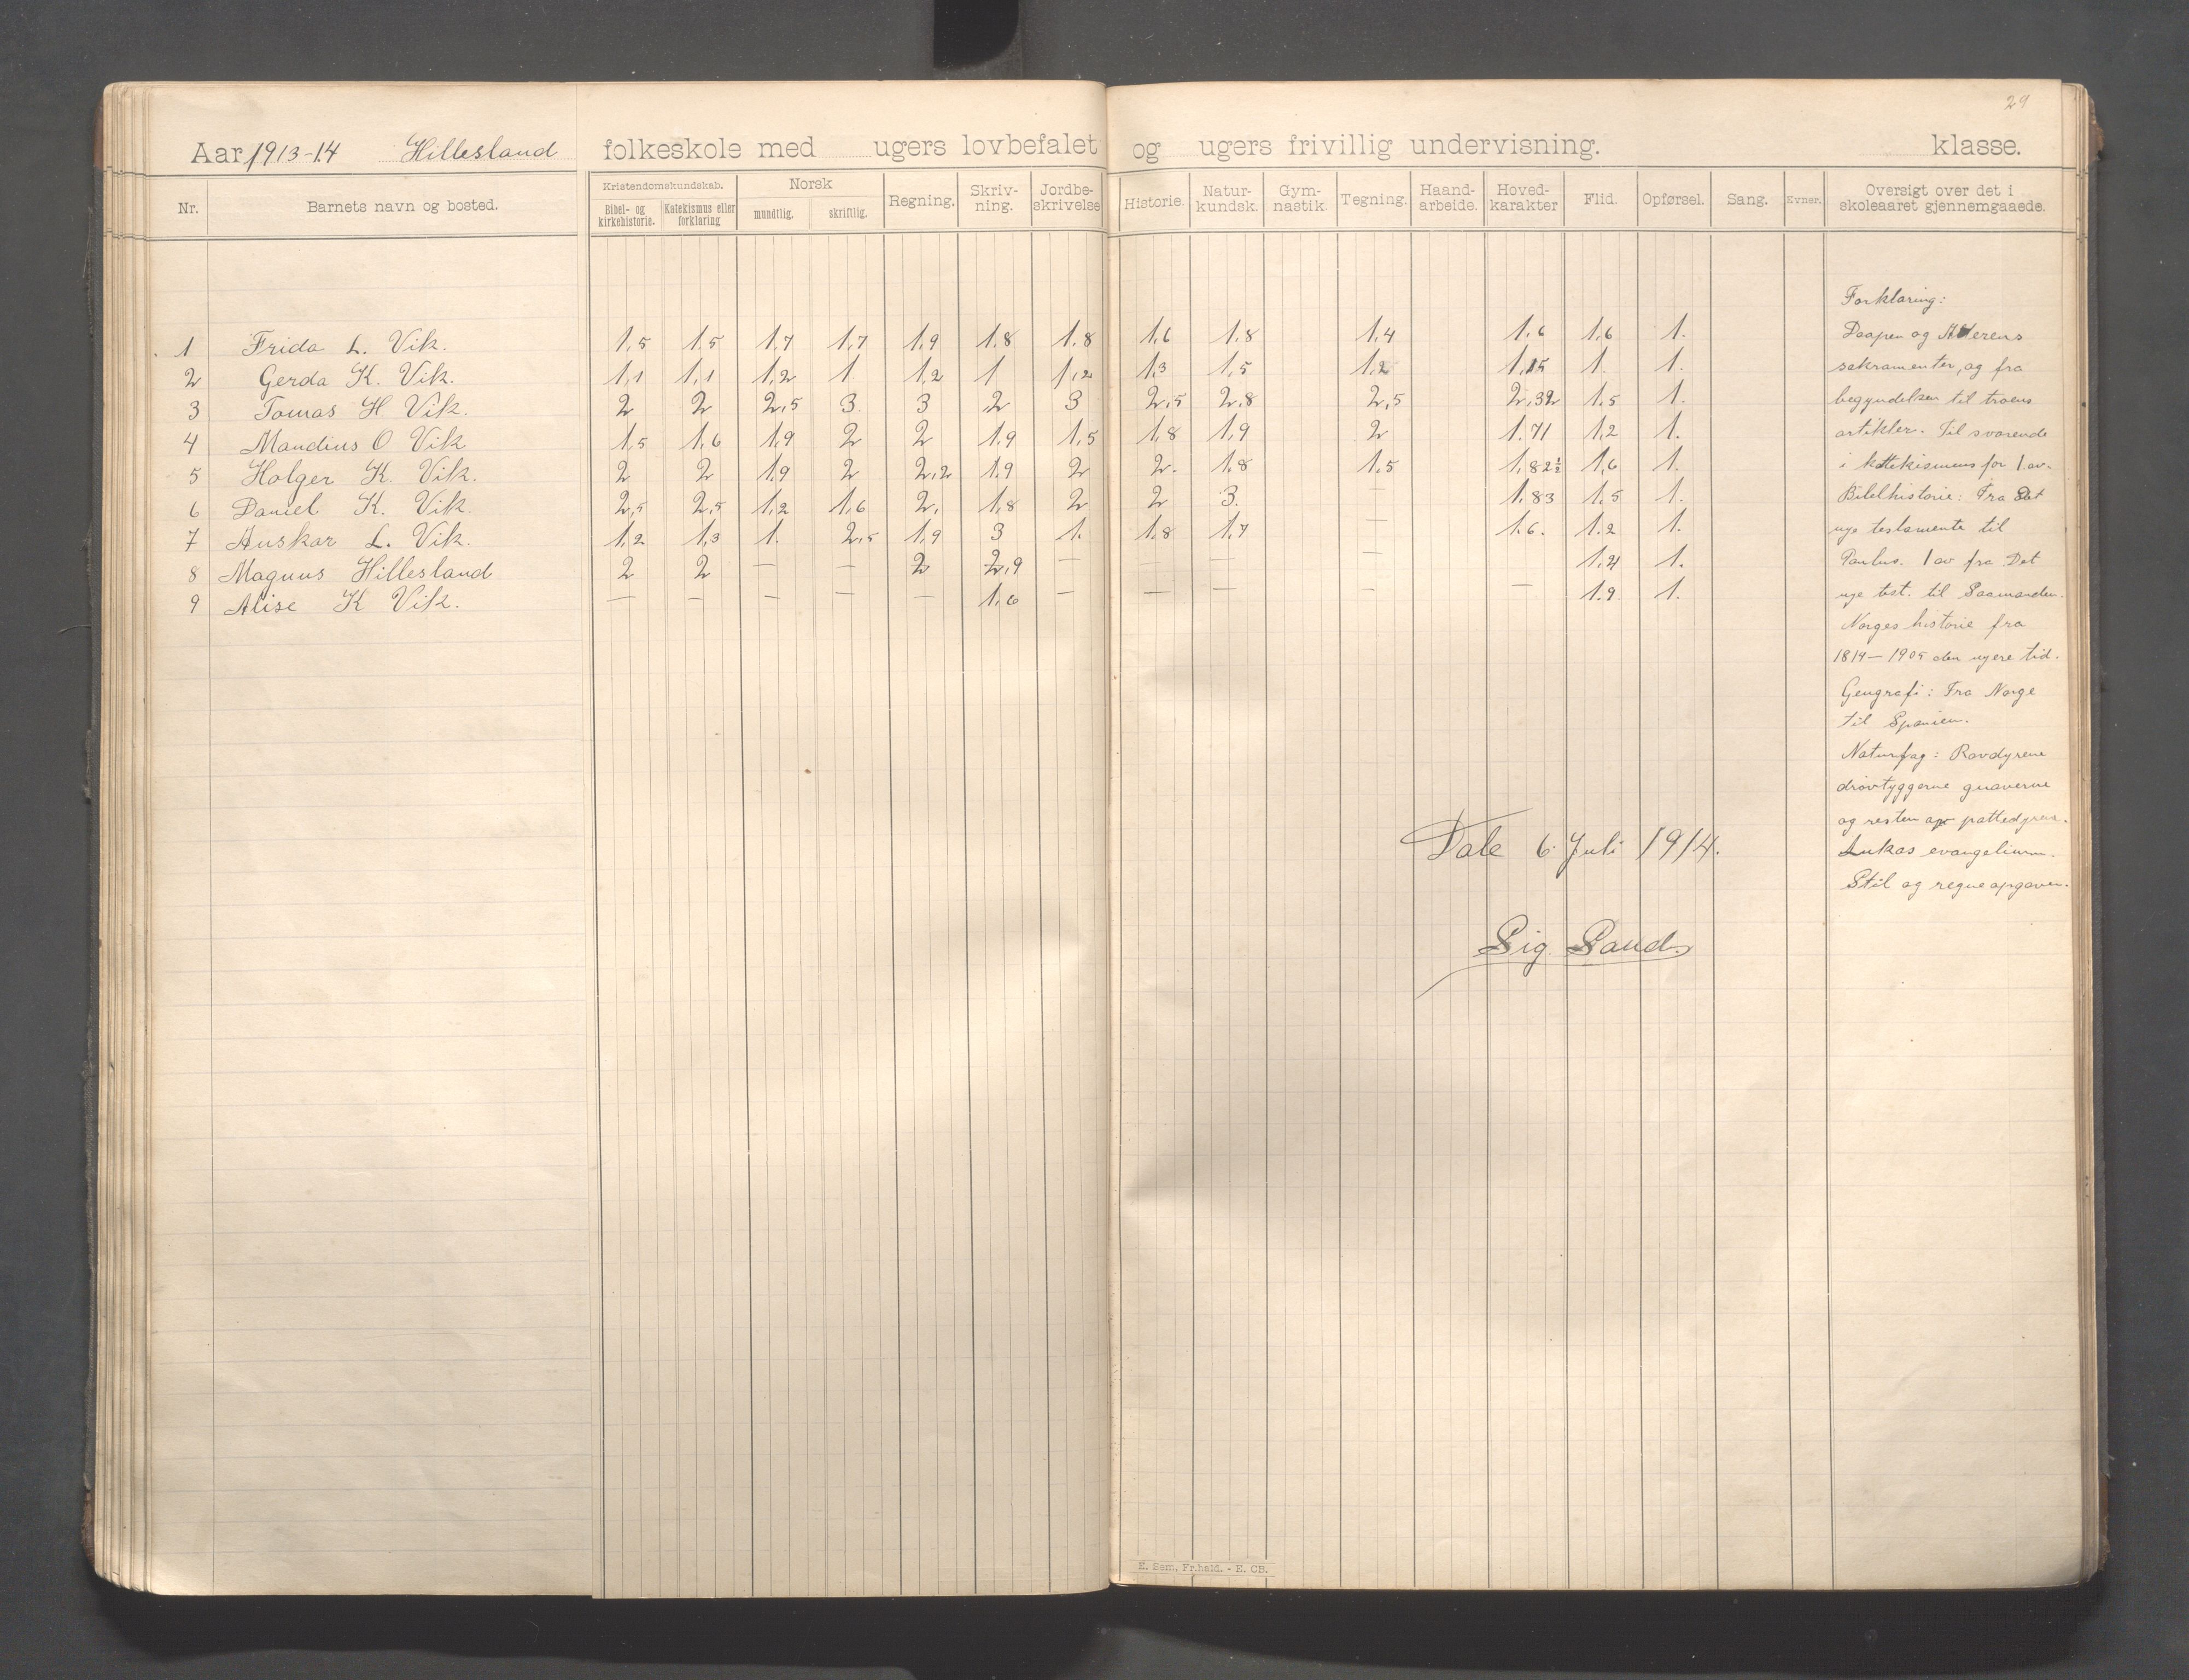 29
Aar 1913-14 Hillesland folkeskole med ugers lovbefalet og ugers frivillig undervisning. klasse.
Nr. Barnets navn og bosted. Kristendomskundskab. Bibel- og kirkehistorie. Katekismus eller forklaring Norsk mundtlig. skriftlig. Regning. Skriv-ning. Jordbe-skrivelse Historie. Natur-kundsk. Gym-nastik. Tegning. Haand-arbeide. Hoved-karakter Flid. Opførsel. Sang. Evner. Oversigt over det i skoleaaret gjennemgaaede.
1 Frida L. Vik. 1,5 1,5 1,7 1,7 1,9 1,8 1,8 1,6 1,8 1,4 1,6 1,6 1.
2 Gerda K. Vik. 1,1 1,1 1,2 1 1,2 1 1,2 1,3 1,5 1,2 1,15 1. 1.
3 Tomas H. Vik. 2 2 2,5 3. 3 2 3 2,5 2,8 2,5 2,32 1,5 1.
4 Mandius O Vik 1,5 1,6 1,9 2 2 1,9 1,5 1,8 1,9 2 1.71 1,2 1.
5 Holger K. Vik. 2 2 1,9 2 2,2 1,9 2 2. 1,8 1,5 1,82½ 1,6 1.
6 Daniel K. Vik. 2,5 2,5 1,2 1,6 2, 1,8 2 2 3. — 1,83 1,5 1.
7 Auskar L. Vik. 1,2 1,3 1. 2,5 1,9 3 1. 1,8 1,7 — 1.6. 1.2 1.
8 Magnus Hillesland 2 2 — — 2 2,9 — — — — 1,4 1.
9 Alise K Vik. — — — — — 1,6 — — — — — 1.9. 1.
Forklaring:
Daapen og Alterens
sakramenter, og fra
begyndelsen til troens
artikler. Til svarende
i katekismens for 1 av.
Bibelhistorie: Fra Det
nye testamente til
Paulus. 1 av fra Det
nye test. til Saamanden.
Norges historie fra
1814 — 1905 den nyere tid.
Geografi: Fra Norge
til Spanien.
Naturfag: Rovdyrene
drøvtyggerne gnaverne
og resten av pattedyrene.
Lukas evangelium.
Stil og regneopgaver.
Dale 6 Juli 1914.
Sig. Sand.
E. Sem, Fr.hald. - E. CB.